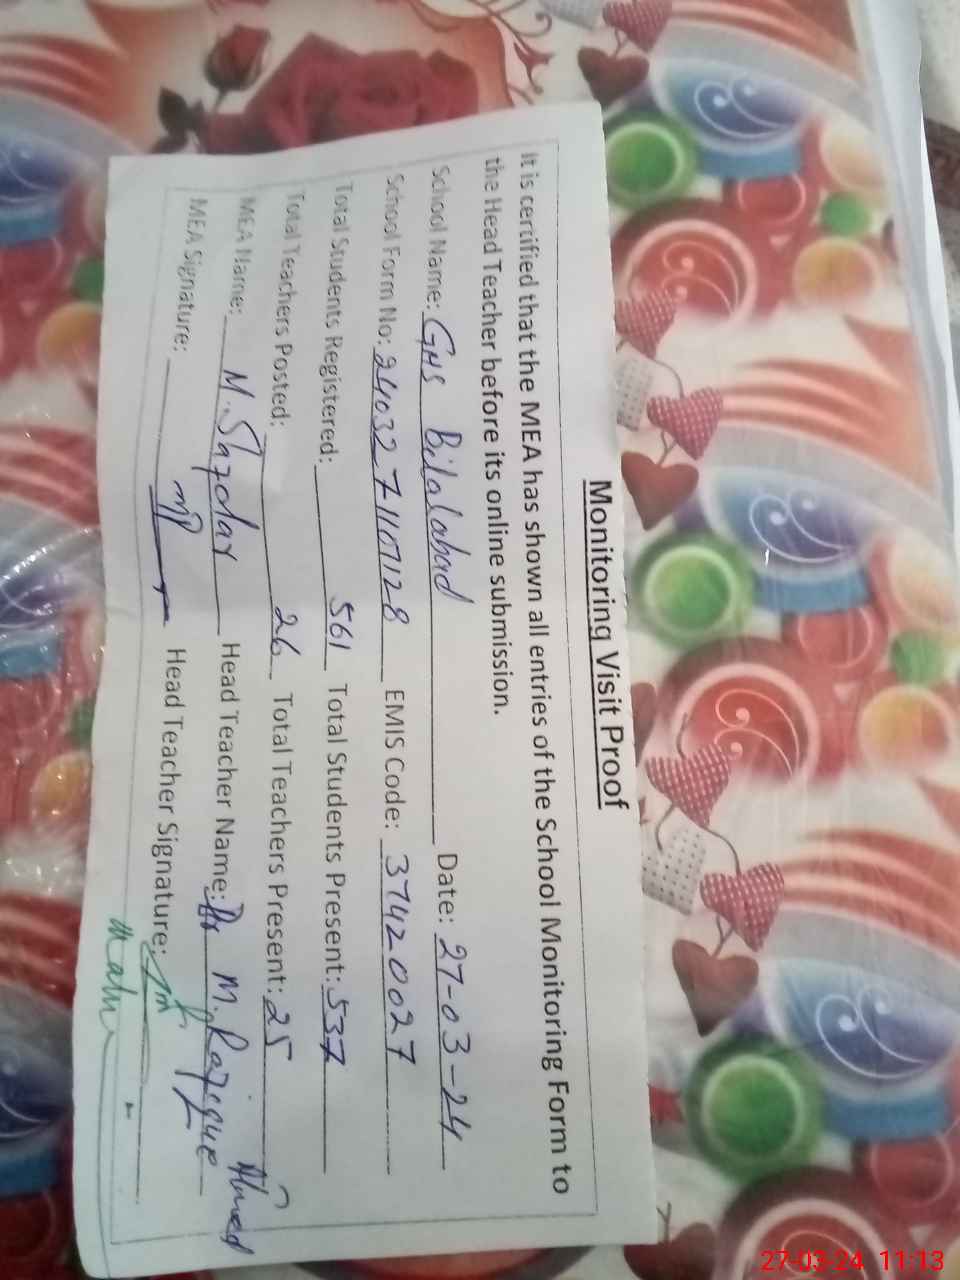 Monitoring Visit Proof
It is certified that the MEA has shown all entries of the School Monitoring Form to
the Head Teacher before its online submission.
School Name: GHS Bilalabad Date: 27-03-24
School Form No: 240327110128 EMIS Code: 37420027
Total Students Registered: 561 Total Students Present: 537
Total Teachers Posted: 26 Total Teachers Present: 25
MEA Name: M. Head Teacher Name: M. Ahmed
MEA Signature: Head Teacher Signature:
27-03-24 11:13